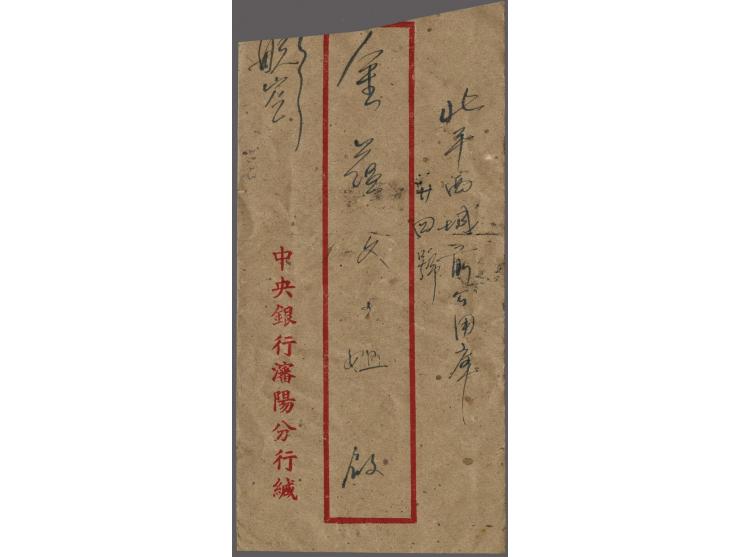 北平西城前公用庫
廿四號
金蘊文小姐 啟
中央銀行瀋陽分行緘